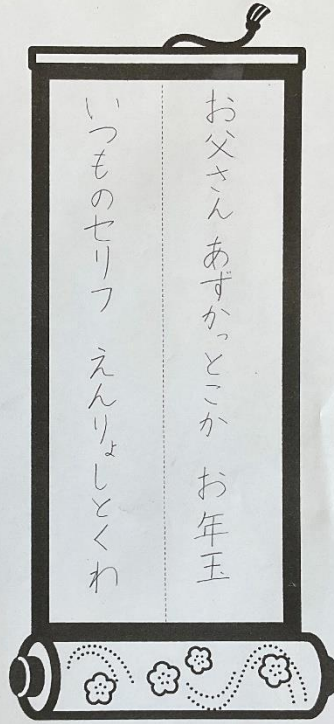 お父さん あずかっとこか お年玉
いつものセリフ えんりょしとくわ